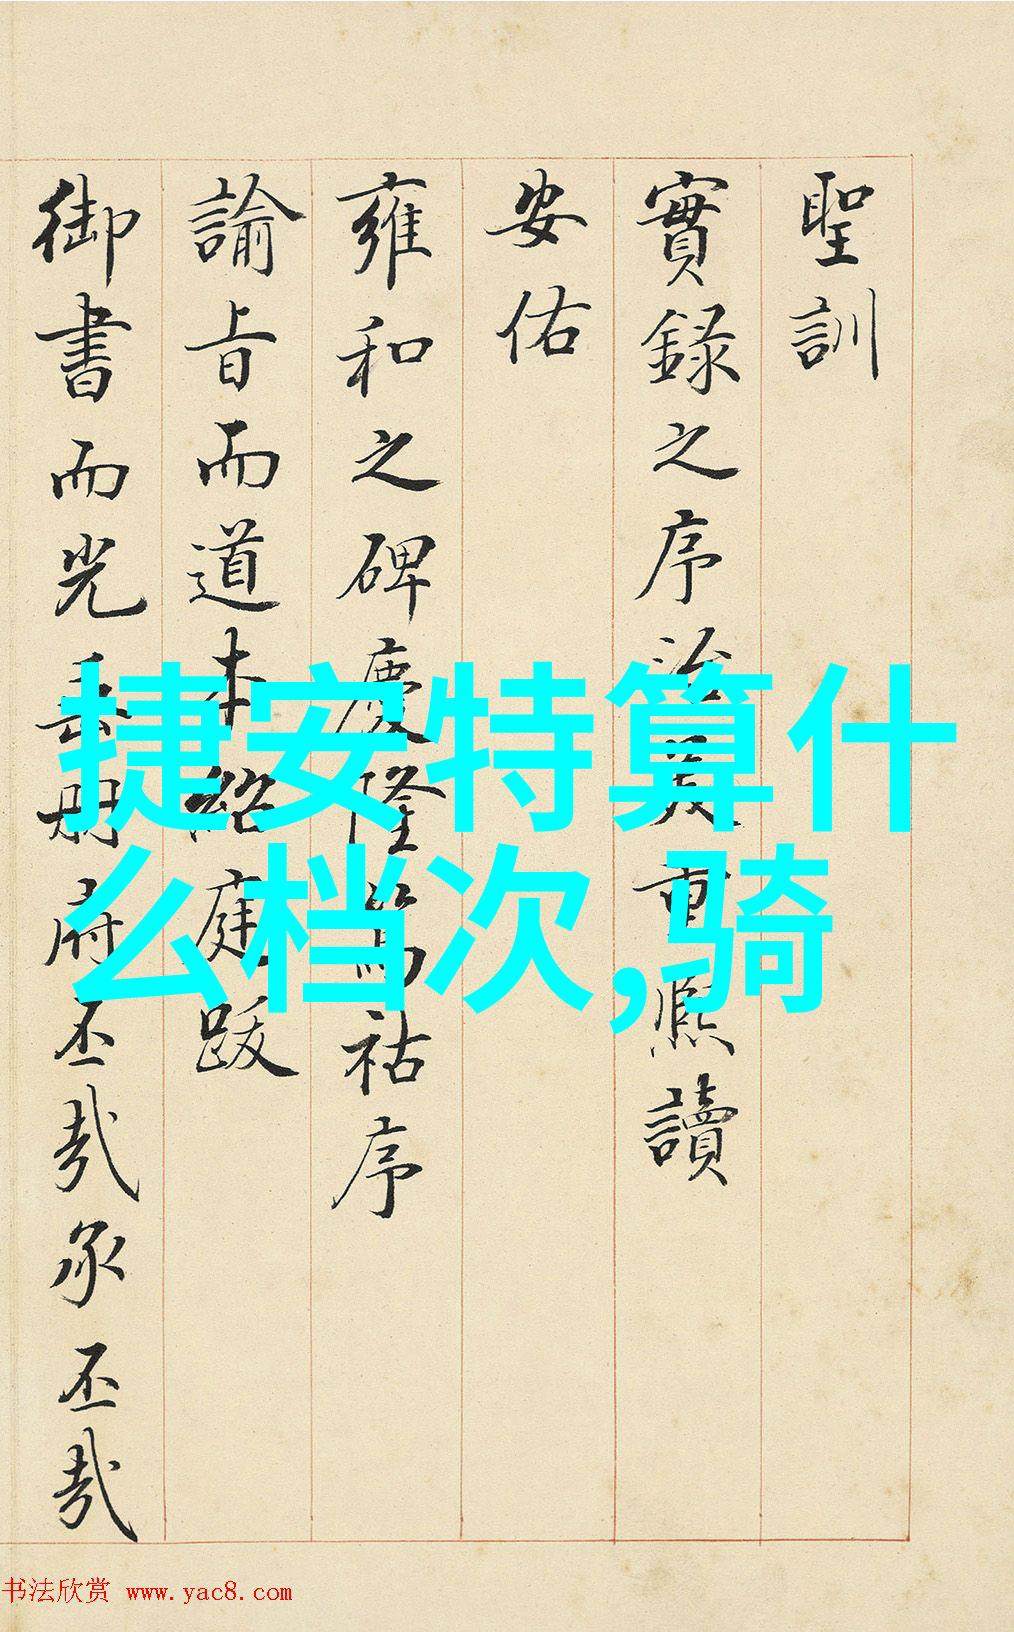 聖訓
實録之序治美重熙讀
安佑
雍和之碑慶隆篤祜序
諭旨而道本紹庭踐
御書而光垂册府丕哉承丕哉
捷安特算什
么档次,骑
书法欣赏 www.yac8.com